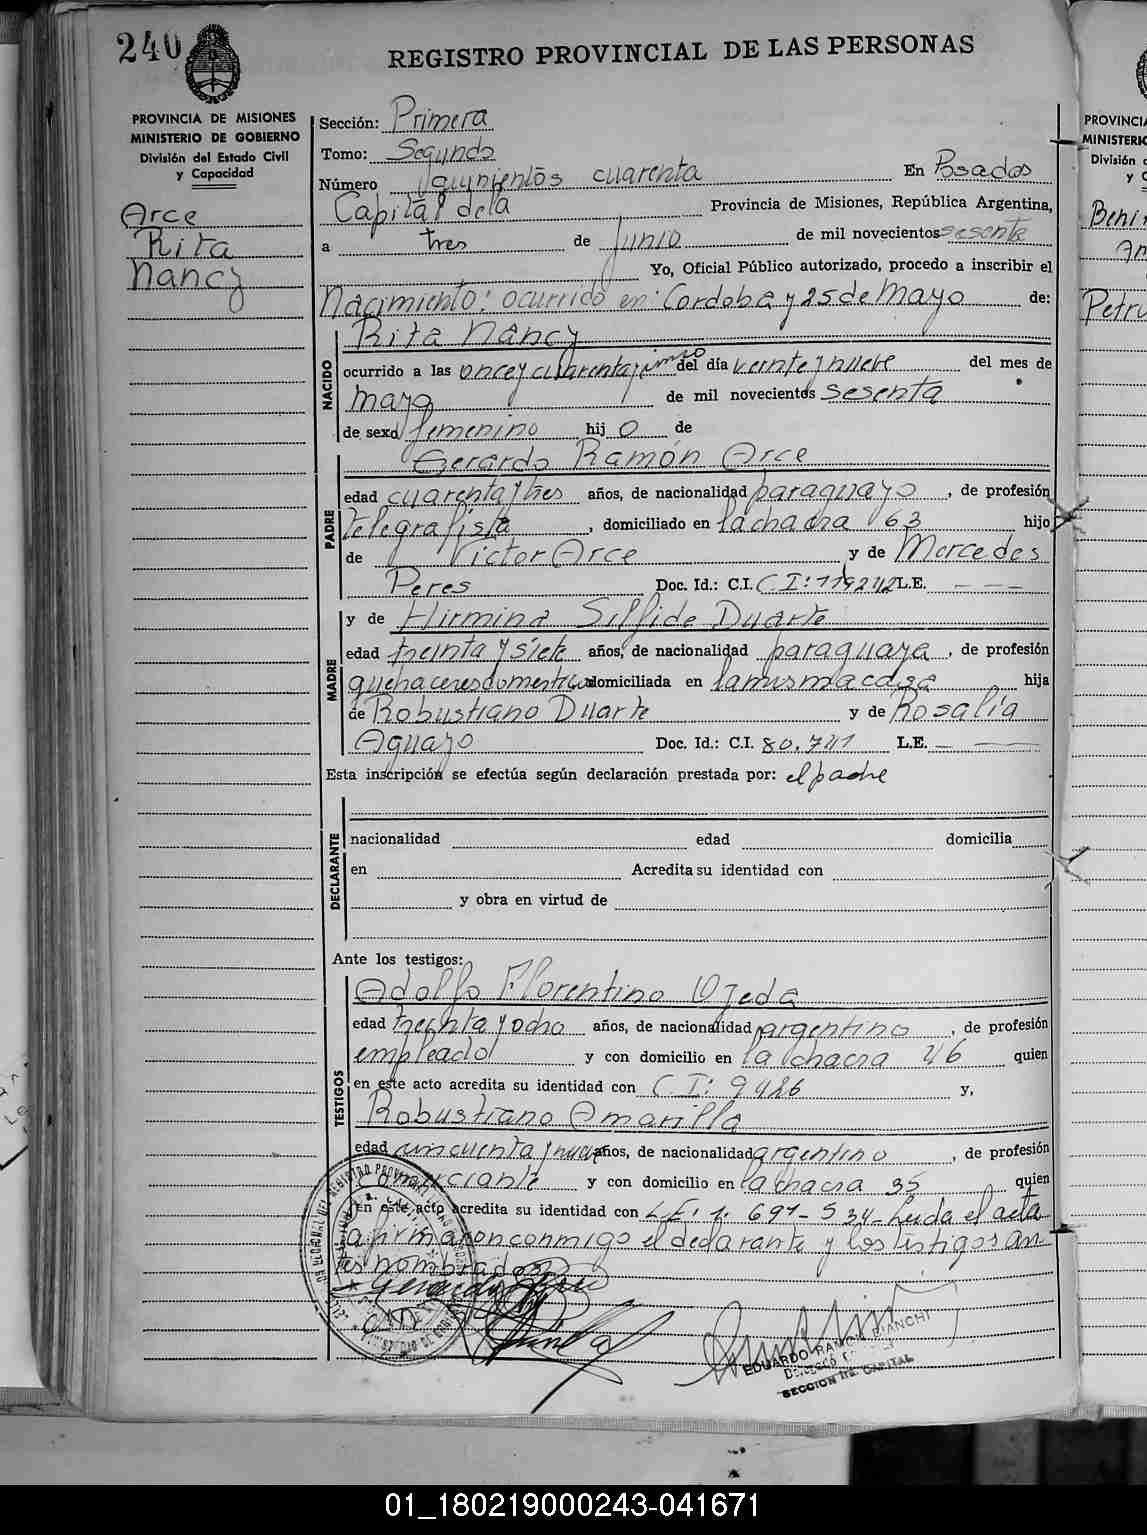 240
REGISTRO PROVINCIAL DE LAS PERSONAS
PROVINCIA DE MISIONES
MINISTERIO DE GOBIERNO
División del Estado Civil
y Capacidad
Arce
Rita
Nancy
Sección: Primera
Tomo: Segundo
Número quinientos cuarenta En Posadas
Capital de la Provincia de Misiones, República Argentina,
a tres de Junio de mil novecientos sesenta
Yo, Oficial Público autorizado, procedo a inscribir el
Nacimiento: ocurrido en: Cordoba y 25 de Mayo de:
NACIDO
Rita Nancy
ocurrido a las once y cuarenta y cinco del día veinte y nueve del mes de
mayo de mil novecientos sesenta
de sexo femenino hij o de
PADRE
Gerardo Ramón Arce
edad cuarenta y tres años, de nacionalidad paraguayo, de profesión
telegrafista, domiciliado en la chacra 63 hijo
de Victor Arce y de Mercedes
Peres Doc. Id.: C.I. C.I: 119242 L.E. - - -
MADRE
y de Hirmina Silfide Duarte
edad treinta y siete años, de nacionalidad paraguaya, de profesión
quehaceres domesticos domiciliada en la misma casa hija
de Robustiano Duarte y de Rosalía
Aguayo Doc. Id.: C.I. 80.741 L.E. - -
Esta inscripción se efectúa según declaración prestada por: el padre
DECLARANTE
nacionalidad edad domicilia
en Acredita su identidad con
y obra en virtud de
Ante los testigos:
TESTIGOS
Adolfo Florentino Ojeda
edad treinta y ocho años, de nacionalidad argentino, de profesión
empleado y con domicilio en la chacra 46 quien
en este acto acredita su identidad con C.I: 9486 y,
Robustiano Amarilla
edad cincuenta y nueve años, de nacionalidad argentino, de profesión
comerciante y con domicilio en la chacra 35 quien
en este acto acredita su identidad con L.E: 1.691-534- Leida el acta
la firmaron conmigo el declarante y los testigos an-
tes nombrados
EDUARDO RAMON BIANCHI
SECCION 1ra. CAPITAL
PROVINCIA
MINISTERIO
División d
y C
Petru
01_180219000243-041671